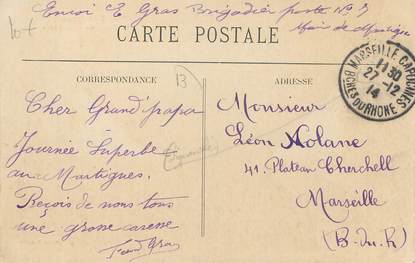 Envoi E Gras Brigadier poste N° 3
CARTE POSTALE
MARSEILLE CAPUCINES
11 30
27 -12
14
BCHES DU RHONE
CORRESPONDANCE
13
ADRESSE
Cher Grand'papa
Journée Superbe
aux Martigues.
Reçois de nous tous
une grosse caresse
Gras
Monsieur
Léon Nolane
41. Plateau Cherchell
Marseille
(B-du-R)